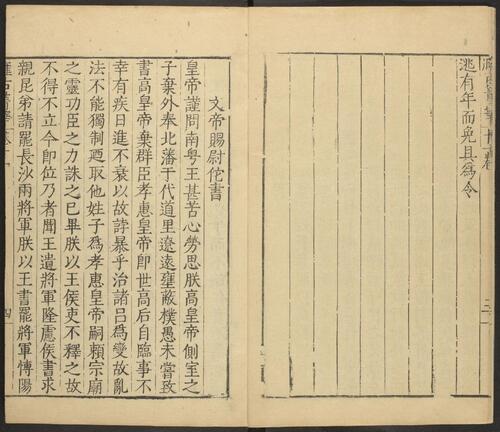 逃有年而免且為令
三
文帝賜尉佗書
皇帝謹問南粵王甚苦心勞思朕高皇帝側室之
子棄外奉北藩于代道里遼遠壅蔽樸愚未嘗致
書高皇帝棄群臣孝惠皇帝即世高后自臨事不
幸有疾日進不衰以故誖暴乎治諸呂為變故亂
法不能獨制迺取他姓子為孝惠皇帝嗣賴宗廟
之靈功臣之力誅之已畢朕以王侯吏不釋之故
不得不立今即位乃者聞王遺將軍隆慮侯書求
親昆弟請罷長沙兩將軍朕以王書罷將軍博陽
四